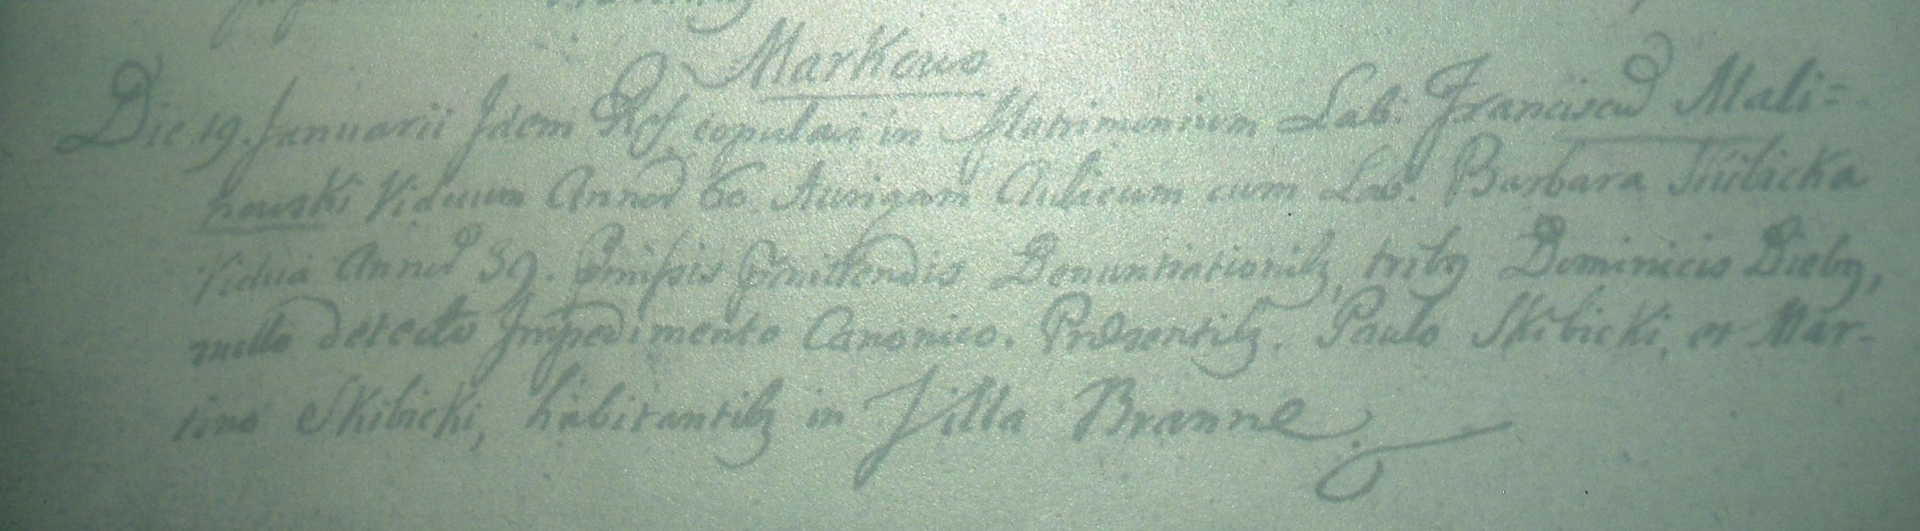 Markowo
Die 19. Januarii Idem Qs copulavi in Matrimonium Lab: Franciscũ Mali=
nowski Viduum Annoȓ 60. Aurigam Aulicum cum Lab: Barbara Skibicka
Vidua Annoȓ 39. Pmissis Pmittendis Denuntiationibꝫ, tribꝫ Dominicis Diebꝫ,
nullo detecto Impedimento Canonico. Præsentibꝫ. Paulo Skibicki, et Mar-
tino Skibicki, habitantibꝫ in Villa Branne.